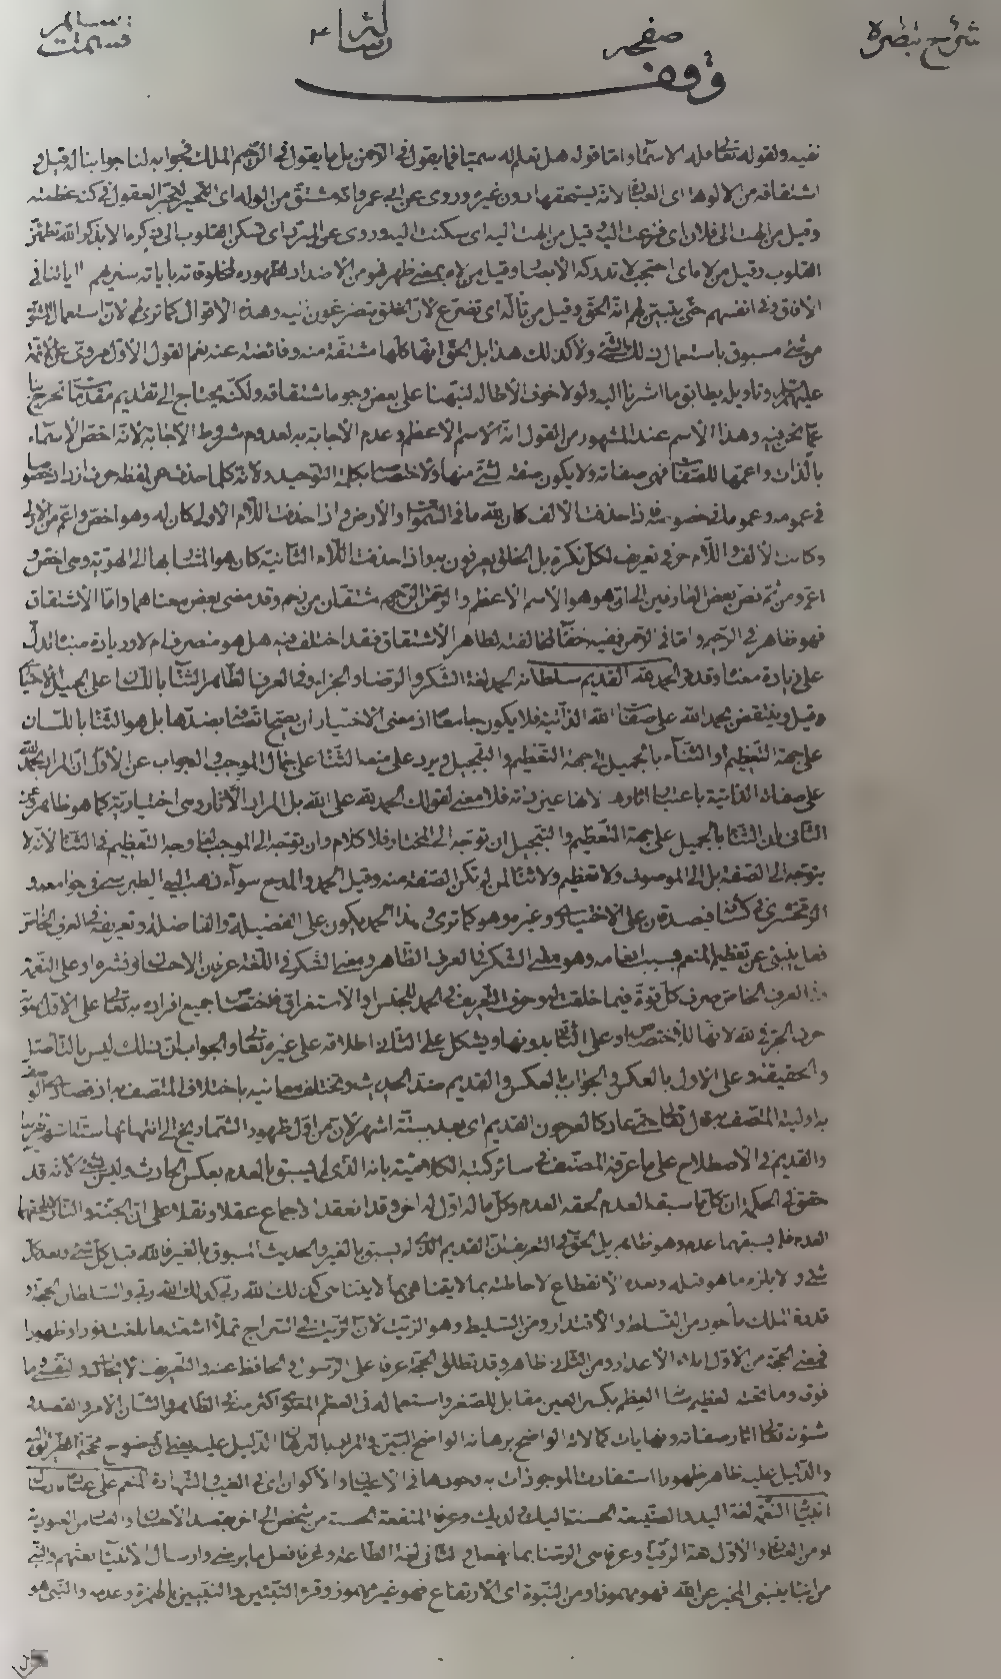 شرح تبصرة
صفحه
رسالة
وقف
نفيه ولقوله تعالى فله الاسماء وامّا قوله هل تعلم له سميّا فما يقول في الرّحمن بل ما يقول في الرّحيم الملك فجوابه لنا جوابنا له قيل في
اشتقاقه من الالوهة اى العبادة لانّه يستحقها دون غيره وروى عن ابى عمر فانّه مشتق من الوله اى التحيّر لتحيّر العقول في كنه عظمته
وقيل من الهت الى فلان اى فزعت اليه وقيل من الهت اليه اى سكنت اليه وروى عن المبرّد اى تسكن القلوب الى ذكره الا بذكر الله تطمئنّ
القلوب وقيل من لاه اى احتجب لا تدركه الابصار وقيل من لاه بمعنى ظهر فهو من الاضداد لظهوره لمخلوقاته باياته سنريهم اياتنا في
الآفاق وفى انفسهم حتّى يتبيّن لهم انّه الحق وقيل من تألّه اى تضرّع لانّ الخلق يتضرّعون اليه وهذه الاقوال كما ترى لانّ استعمال المشتق
من شئ مسبوق باستعمال ذلك الشئ ولا كذلك هذا بل الحق انّها كلّها مشتقة منه وفائضة عنه نعم القول الاوّل مروىّ عن الائمّة
عليهم السلام وتأويله يطابق ما اشرنا اليه ولولا خوف الاطالة لنبّهنا على بعض وجوه اشتقاقه ولكنّه يحتاج الى تقديم مقدّمات تخرجنا
عمّا نحن فيه وهذا الاسم عند المشهور من القول انّه الاسم الاعظم وعدم الاجابة به لعدم شروط الاجابة لانّه اخصّ الاسماء
بالذّات واعمّها للصّفات فهى صفاته ولا يكون صفة لشئ منها ولاختصاصه بكلمة التوحيد ولانّه كلّما حذف من لفظه حرف ازداد خصوصا
في عمومه وعموما في خصوصه فاذا حذفت الالف كان لله ما في السّموات والارض واذا حذفت اللّام الاولى كان له وهو اخصّ واعمّ من الاولى
وكانت الالف واللّام حرفي تعريف لكلّ نكرة بل الخلق يعرفون به واذا حذفت اللّام الثّانية كان هو المشار بها الى الهويّة وهى اخصّ و
اعمّ ومن ثمّ نصّ بعض العارفين الى انّ هو هو الاسم الاعظم والرّحمن الرّحيم مشتقان من رحم وقد مضى بعض معناهما وامّا الاشتقاق
فهو ظاهر في الرّحيم وامّا في الرّحمن ففيه خفاء لمخالفته لظاهر الاشتقاق فقد اختلف فيه هل هو منصرف ام لا وزيادة مبناه تدلّ
على زيادة معناه وقد مرّ الحمد لله القديم سلطانه الحمد لغة الشّكر والرّضا والجزاء وفي العرف الظّاهر الثّناء باللّسان على الجميل الاختيارى
وقيل وينتقض بحمد الله على صفات الله الذّاتيّة فلا يكون جامعا اذ معنى الاختيار ان يصحّ اتّصافه بضدّها بل هو الثّناء باللّسان
على جهة التّعظيم او الثّناء بالجميل على جهة التّعظيم والتّبجيل ويرد على منع الثّناء على جمال الموجب والجواب عن الاوّل انّ المراد بحمد الله
على صفاته الذّاتيّة باعتبار آثاره لانّها عين ذاته فلا معنى لقولك الحمد لله على الله بل المراد الآثار وهى اختياريّة كما هو ظاهر وعن
الثّانى بان الثّناء بالجميل على جهة التّعظيم والتّبجيل ان توجّه الى المختار فلا كلام وان توجّه الى الموجب فلا وجه التّعظيم في الثّناء لانّه لا
يتوجّه الى الصّفة بل الى الموصوف ولا تعظيم ولا ثناء لمن لم تكن الصّفة منه وقيل الحمد والمدح سواء ذهب اليه الطبرسى في جوامعه و
الزمخشرى في كشّافه فيصدقان على الاختيارى وغيره وهو كما ترى وهذا الحمد يكون على الفضيلة والفاضلة وتعريفه في العرف الخاصّ
فعل ينبئ عن تعظيم المنعم بسبب انعامه وهو معنى الشّكر في العرف الظّاهر ومعنى الشّكر في اللّغة عرفان الاحسان ونشره او على النّعمة
وفي العرف الخاصّ صرف كلّ قوّة فيما خلقت له وحرف التّعريف في الحمد للجنس او الاستغراق فاختصّ جميع افراده به تعالى على الاوّل بمعونة
حرف الجرّ في لله لانّها للاختصاص وعلى الثّانى بدونها ويشكل على الثّانى اطلاقه على غيره تعالى والجواب انّ ذلك ليس بالتّأصّل
والحقيقة وعلى الاوّل بالعكس والجواب بالعكس والقديم ضدّ الحديث وتختلف معانيه باختلاف المتّصف به اذ قصارى الوصف
به اوّليّة المتّصف به قال تعالى حتّى عاد كالعرجون القديم اى بعد ستّة اشهر لانّ من اوّل ظهور الشّماريخ الى انتهائها ستّة اشهر تقريبا
والقديم في الاصطلاح على ما عرفه المصنّف في سائر كتبه الكلاميّة بانّه الّذى لم يسبق بالعدم بعكس الحادث وليس بشئ لانّه قد
حقّق في الحكمة انّ كلّ ما سبقه العدم لحقه العدم وكلّ ما له اوّل له آخر وقد انعقد الاجماع عقلا ونقلا على انّ الجنّة والنّار لا يلحقهما
العدم فلم يسبقهما عدم وهو ظاهر بل الحقّ في التّعريف انّ القديم الّذى لم يسبق بالغير والحديث المسبوق بالغير فالله قبل كلّ شئ وبعد كلّ
شئ ولا يلزم ما هو قبله وبعده الانقطاع لاحاطته بما لا يتناهى بما لا يتناهى كذلك الله ربّى كذلك الله ربّى والسّلطان الحجّة و
قدرة الملك مأخوذ من التّسلّط والاقتدار ومن السّليط وهو الزّيت لانّ الزّيت في السّراج تملأ اشعّته ما بلغته نورا وظهورا
ففى الحجّة من الاوّل ابلاء الاعذار ومن الثّانى ظاهر وقد تطلق الحجّة عرفا على الرّسول والحافظ عند
فوقه وما تحته لعظيم شأنه العظم بكسر العين مقابل للصّغر واستعماله في العظم المعنوى اكثر منه في الظّاهر والشّأن الامر والقصد و
شؤنه تعالى آثار صفاته ونهايات كمالاته الواضح برهانه الواضح البيّن والمراد بالبرهان الدّليل عليه يعنى انّ وضوح محجّة الطّريق اليه
والدّليل عليه ظاهر ظهورا استفادت الموجودات به وجودها في الاعيان والاكوان اى في الغيب والشّهادة المنعم على عباده بارسال
انبيائه النّعمة لغة اليد والصّنيعة الحسنة اليك ولديك وعرفا المنفعة الحسنة من شخص الى آخر بقصد الاحسان والعباد من العبودية
او من العبادة والاوّل هنا الرّقيّة وعرفا هى الرّضا بما يفعل والثّانى لغة الطّاعة وعرفا فعل ما يرضى وارسال الانبياء بعثهم والنّبىّ
من انبأ ينبئ المخبر عن الله فهو مهموز او من النّبوة اى الارتفاع فهو غير مهموز وقرئ النّبيئين والنّبيّين بالهمزة وعدمه والنّبىّ هو